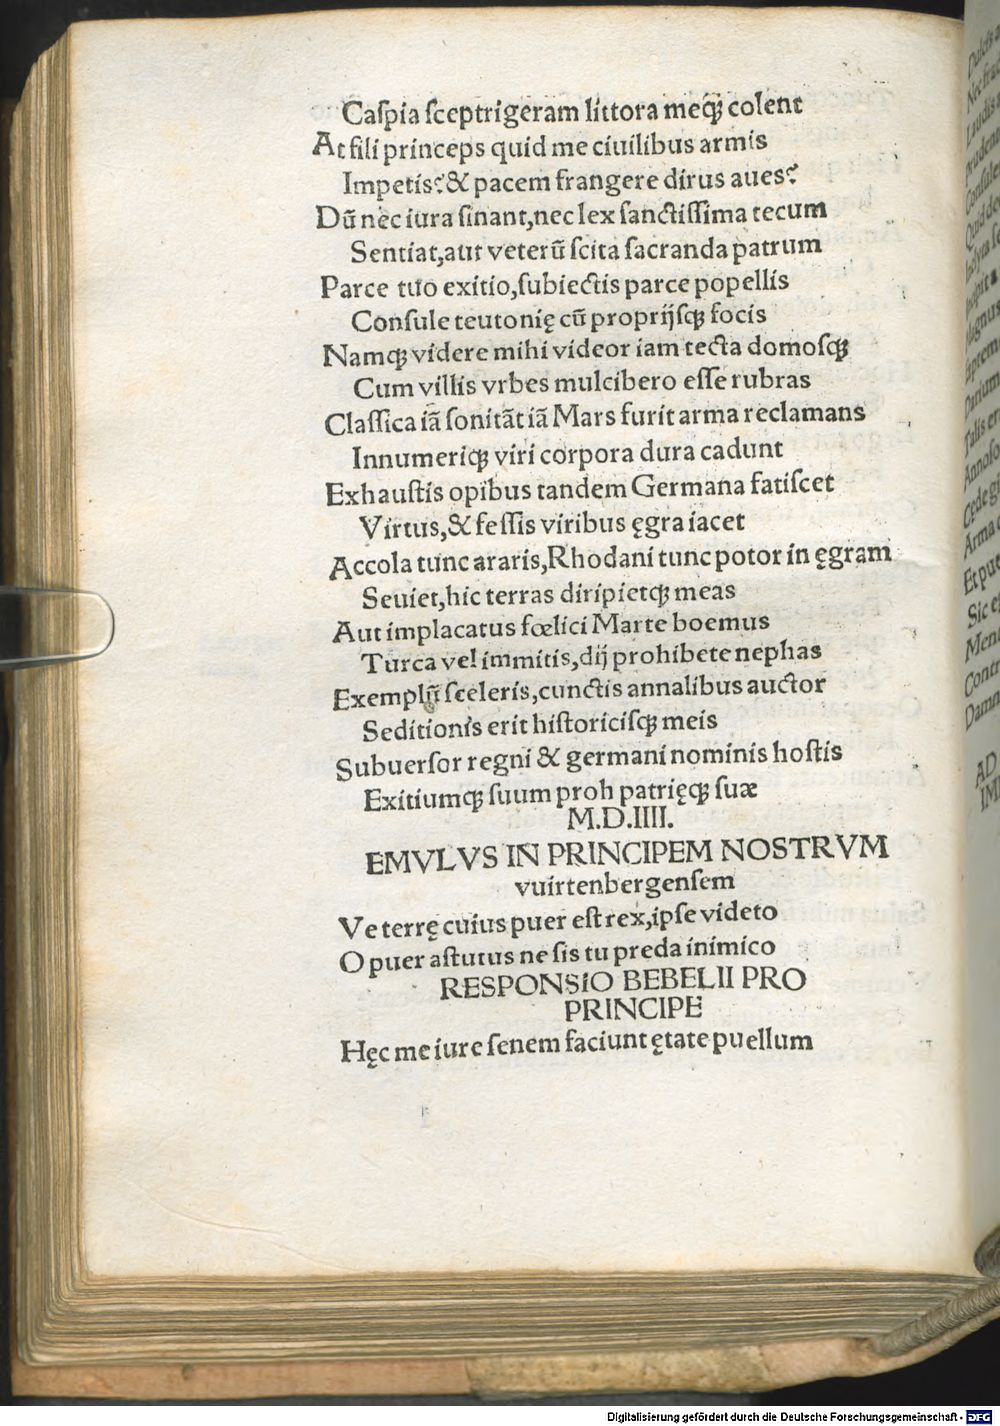 Caſpia ſceptrigeram littora meqꝫ colent
At fili princeps quid me ciuilibus armis
Impetis? & pacem frangere dirus aues?
Dū nec iura ſinant,nec lex ſanctiſſima tecum
Sentiat,aut veterū ſcita ſacranda patrum
Parce tuo exitio,ſubiectis parce popellis
Conſule teutonię cū proprijſqꝫ focis
Namqꝫ videre mihi videor iam tecta domoſqꝫ
Cum villis vrbes mulcibero eſſe rubras
Claſſica iā ſonitāt iā Mars furit arma reclamans
Innumeriqꝫ viri corpora dura cadunt
Exhauſtis opibus tandem Germana fatiſcet
Virtus,& feſſis viribus ęgra iacet
Accola tunc araris,Rhodani tunc potor in ęgram
Seuiet,hic terras diripietqꝫ meas
Aut implacatus fœlici Marte boemus
Turca vel immitis,dij prohibete nephas
Exemplū ſceleris,cunctis annalibus auctor
Seditionis erit hiſtoriciſqꝫ meis
Subuerſor regni & germani nominis hoſtis
Exitiumqꝫ ſuum proh patrięqꝫ ſuæ
M.D.IIII.
EMVLVS IN PRINCIPEM NOSTRVM
vuirtenbergenſem
Ve terrę cuius puer eſt rex,ipſe videto
O puer aſtutus ne ſis tu preda inimico
RESPONSIO BEBELII PRO
PRINCIPE
Hęc me iure ſenem faciunt ętate puellum
Digitalisierung gefördert durch die Deutsche Forschungsgemeinschaft - DFG